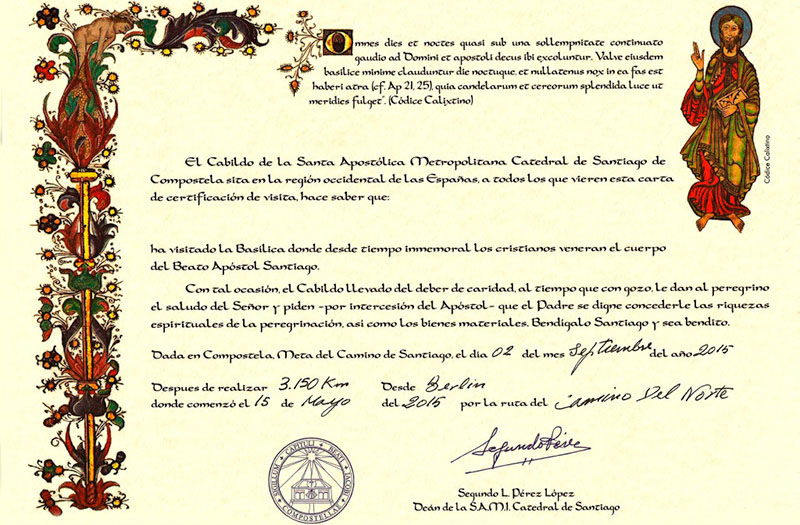 Omnes dies et noctes quasi sub una sollempnitate continuato
gaudio ad Domini et apostoli decus ibi excoluntur. Valve eiusdem
basilice minime clauduntur die noctuque, et nullatenus nox in ea fas est
haberi atra (cf. Ap 21, 25), quia candelarum et cereorum splendida luce ut
meridies fulget". (Códice Calixtino)
Códice Calixtino
El Cabildo de la Santa Apostólica Metropolitana Catedral de Santiago de
Compostela sita en la región occidental de las Españas, a todos los que vieren esta carta
de certificación de visita, hace saber que:
ha visitado la Basílica donde desde tiempo inmemoral los cristianos veneran el cuerpo
del Beato Apóstol Santiago.
Con tal ocasión, el Cabildo llevado del deber de caridad, al tiempo que con gozo, le dan al peregrino
el saludo del Señor y piden -por intercesión del Apóstol- que el Padre se digne concederle las riquezas
espirituales de la peregrinación, asi como los bienes materiales. Bendígalo Santiago y sea bendito.
Dada en Compostela, Meta del Camino de Santiago, el día 02 del mes Septiembre del año 2015
Despues de realizar 3.150 Km Desde Berlin
donde comenzó el 15 de Mayo del 2015 por la ruta del Camino Del Norte
SIGILLUM CAPITULI BEATI IACOBI COMPOSTELLAE
Segundo Pérez
Segundo L. Pérez López
Deán de la S.A.M.I. Catedral de Santiago